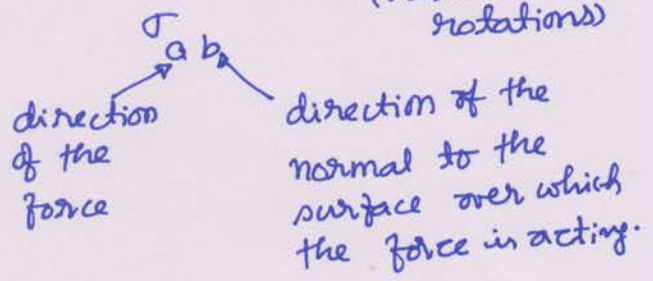 rotations)
σ a b
direction of the force
direction of the normal to the surface over which the force is acting.